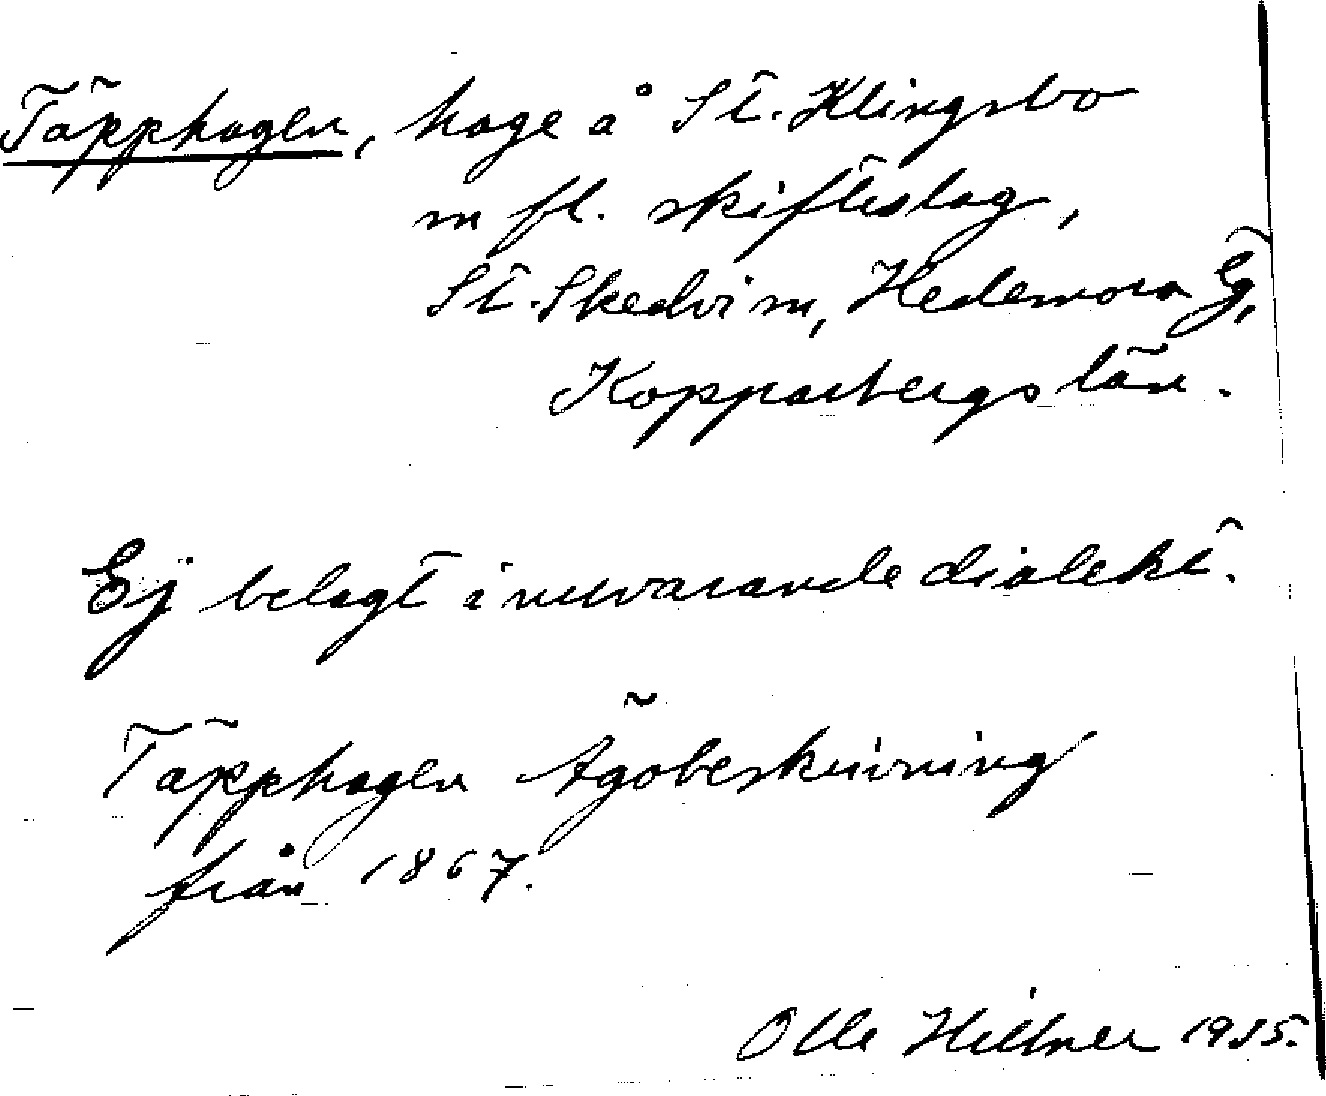 Täpphagen, hage å St. Klingsbo
m fl. skifteslag,
St. Skedvi sn, Hedemora tg,
Kopparbergs län.
Ej belagt i nuvarande dialekt.
Täpphagen Ägobeskrivning
från 1867.
Olle Hillner 1935.